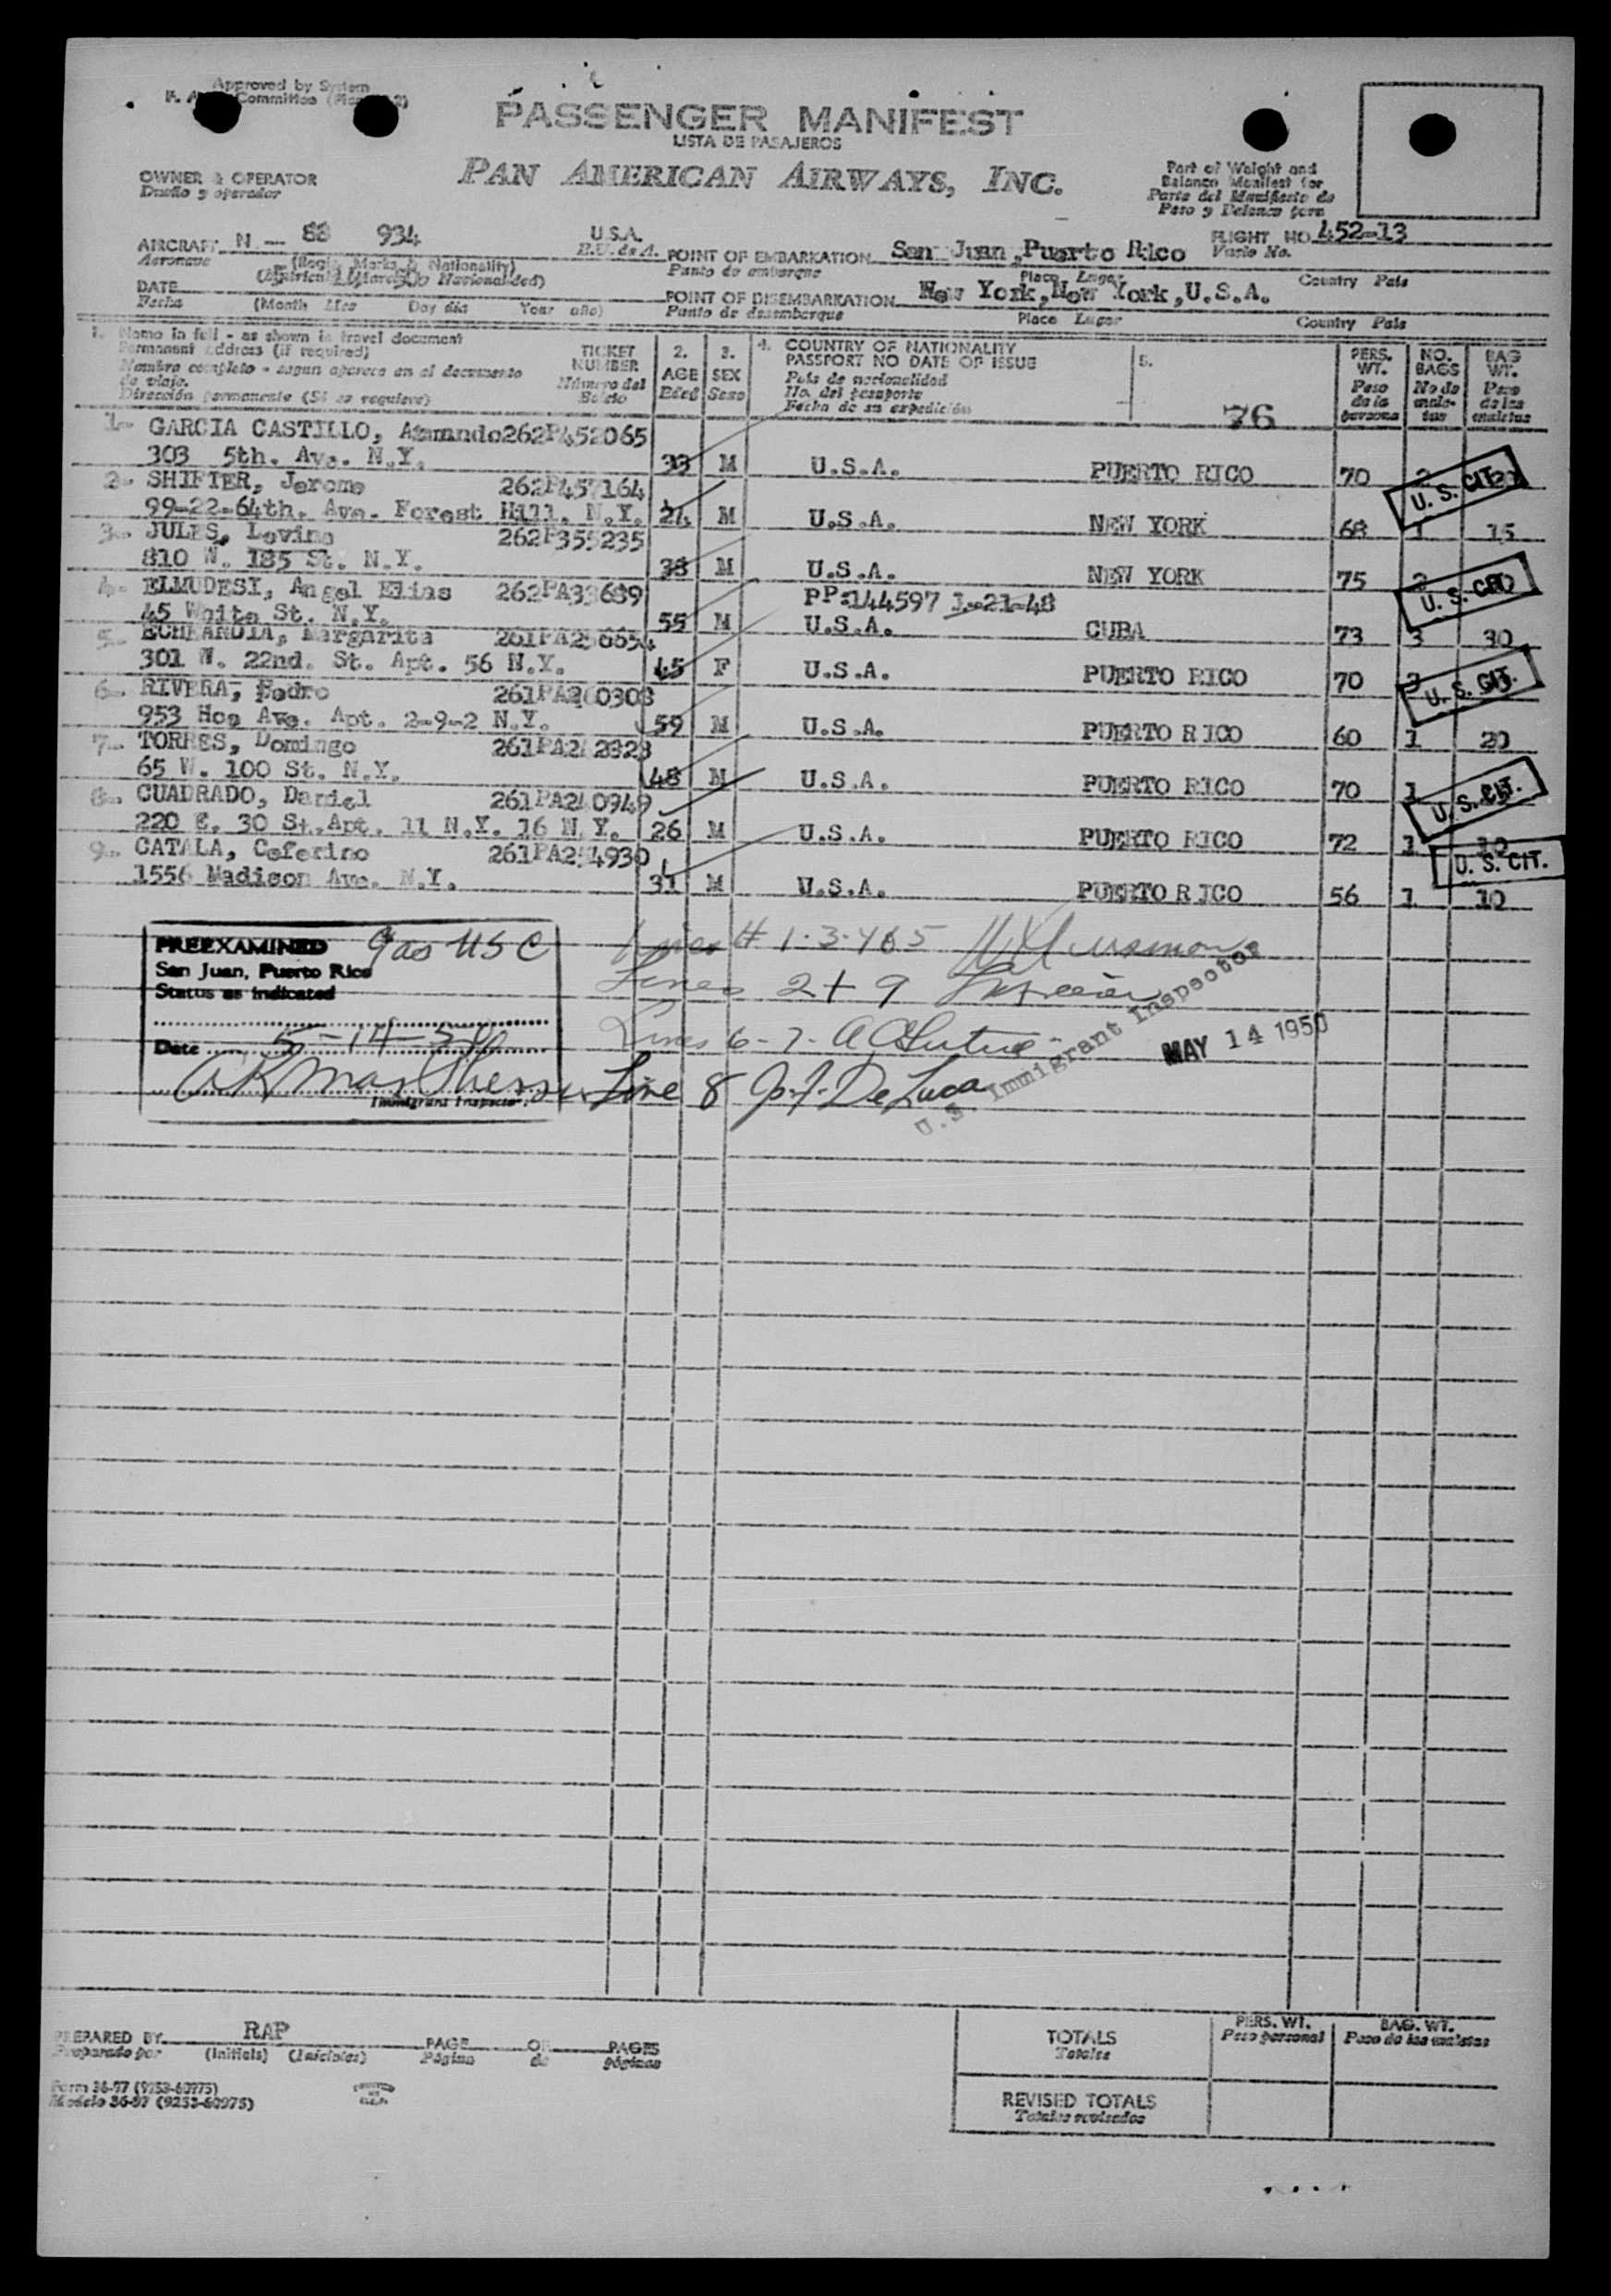 Approved by System
Committee
PASSENGER MANIFEST
LISTA DE PASAJEROS
PAN AMERICAN AIRWAYS, INC.
OWNER & OPERATOR
Dueño y operador
Part of Weight and
Balance Manifest for
Parte del Manifiesto de
Peso y Balance para
AIRCRAFT N — 88 934 U.S.A.
Aeronave (Regis. Marks & Nationality) E.U. de A.
POINT OF EMBARKATION San Juan, Puerto Rico
Punto de embarque Place Lugar Country País
FLIGHT NO. 452-13
Vuelo No.
DATE
Fecha (Month Mes Day día Year año)
POINT OF DISEMBARKATION New York, New York, U.S.A.
Punto de desembarque Place Lugar Country País
1. Name in full - as shown in travel document
Permanent address (if required)
Nombre completo - segun aparece en el documento
de viaje.
Dirección permanente (Si se requiere)
TICKET
NUMBER
Número del
Boleto
2.
AGE
Edad
3.
SEX
Sexo
4. COUNTRY OF NATIONALITY
PASSPORT NO DATE OF ISSUE
País de nacionalidad
No. del pasaporte
Fecha de su expedición
5.
76
PERS.
WT.
Peso
de la
persona
NO.
BAGS
No de
male-
tas
BAG
WT.
Peso
de las
maletas
1- GARCIA CASTILLO, Armando 262P452065
303 5th. Ave. N.Y. 33 M U.S.A. PUERTO RICO 70
U. S. CIT.
2- SHIFTER, Jerome 262P457164
99-22-64th. Ave. Forest Hill. N.Y. M U.S.A. NEW YORK 68 1 15
3- JULES, Lovino 262P355235
810 W. 185 St. N.Y. 38 M U.S.A. NEW YORK 75
U. S. CIT.
4- ELMUDESI, Angel Elias 262PA33689 PP:144597 1-21-48
45 White St. N.Y. 55 M U.S.A. CUBA 73 3 30
5- ECHEANDIA, Margarita
301 W. 22nd. St. Apt. 56 N.Y. 45 F U.S.A. PUERTO RICO 70
U. S. CIT.
6- RIVERA, Pedro 261PA260308
953 Hoe Ave. Apt. 2-9-2 N.Y. 59 M U.S.A. PUERTO RICO 60 1 20
7- TORRES, Domingo
65 W. 100 St. N.Y. 48 M U.S.A. PUERTO RICO 70 1
U. S. CIT.
8- CUADRADO, Daniel
220 E. 30 St. Apt. 11 N.Y. 16 N.Y. 26 M U.S.A. PUERTO RICO 72 1 10
9- CATALA, Ceferino
U. S. CIT.
1556 Madison Ave. N.Y. 31 M U.S.A. PUERTO RICO 56 1 10
PREEXAMINED 9 as USC
San Juan, Puerto Rico
Status as indicated
Date 5-14-50
Immigrant Inspector
Lines 2 + 9
Lines 6-7-
Line 8 J. J. De Luca
U.S. Immigrant Inspector
MAY 14 1950
PREPARED BY RAP PAGE OF PAGES
Preparado por (Initials) (Iniciales) Página de páginas
Form 36-97 (9253-60975)
Modelo 36-97 (9253-60975)
PERS. WT. BAG. WT.
Peso personal Peso de las maletas
TOTALS
Totales
REVISED TOTALS
Totales revisados